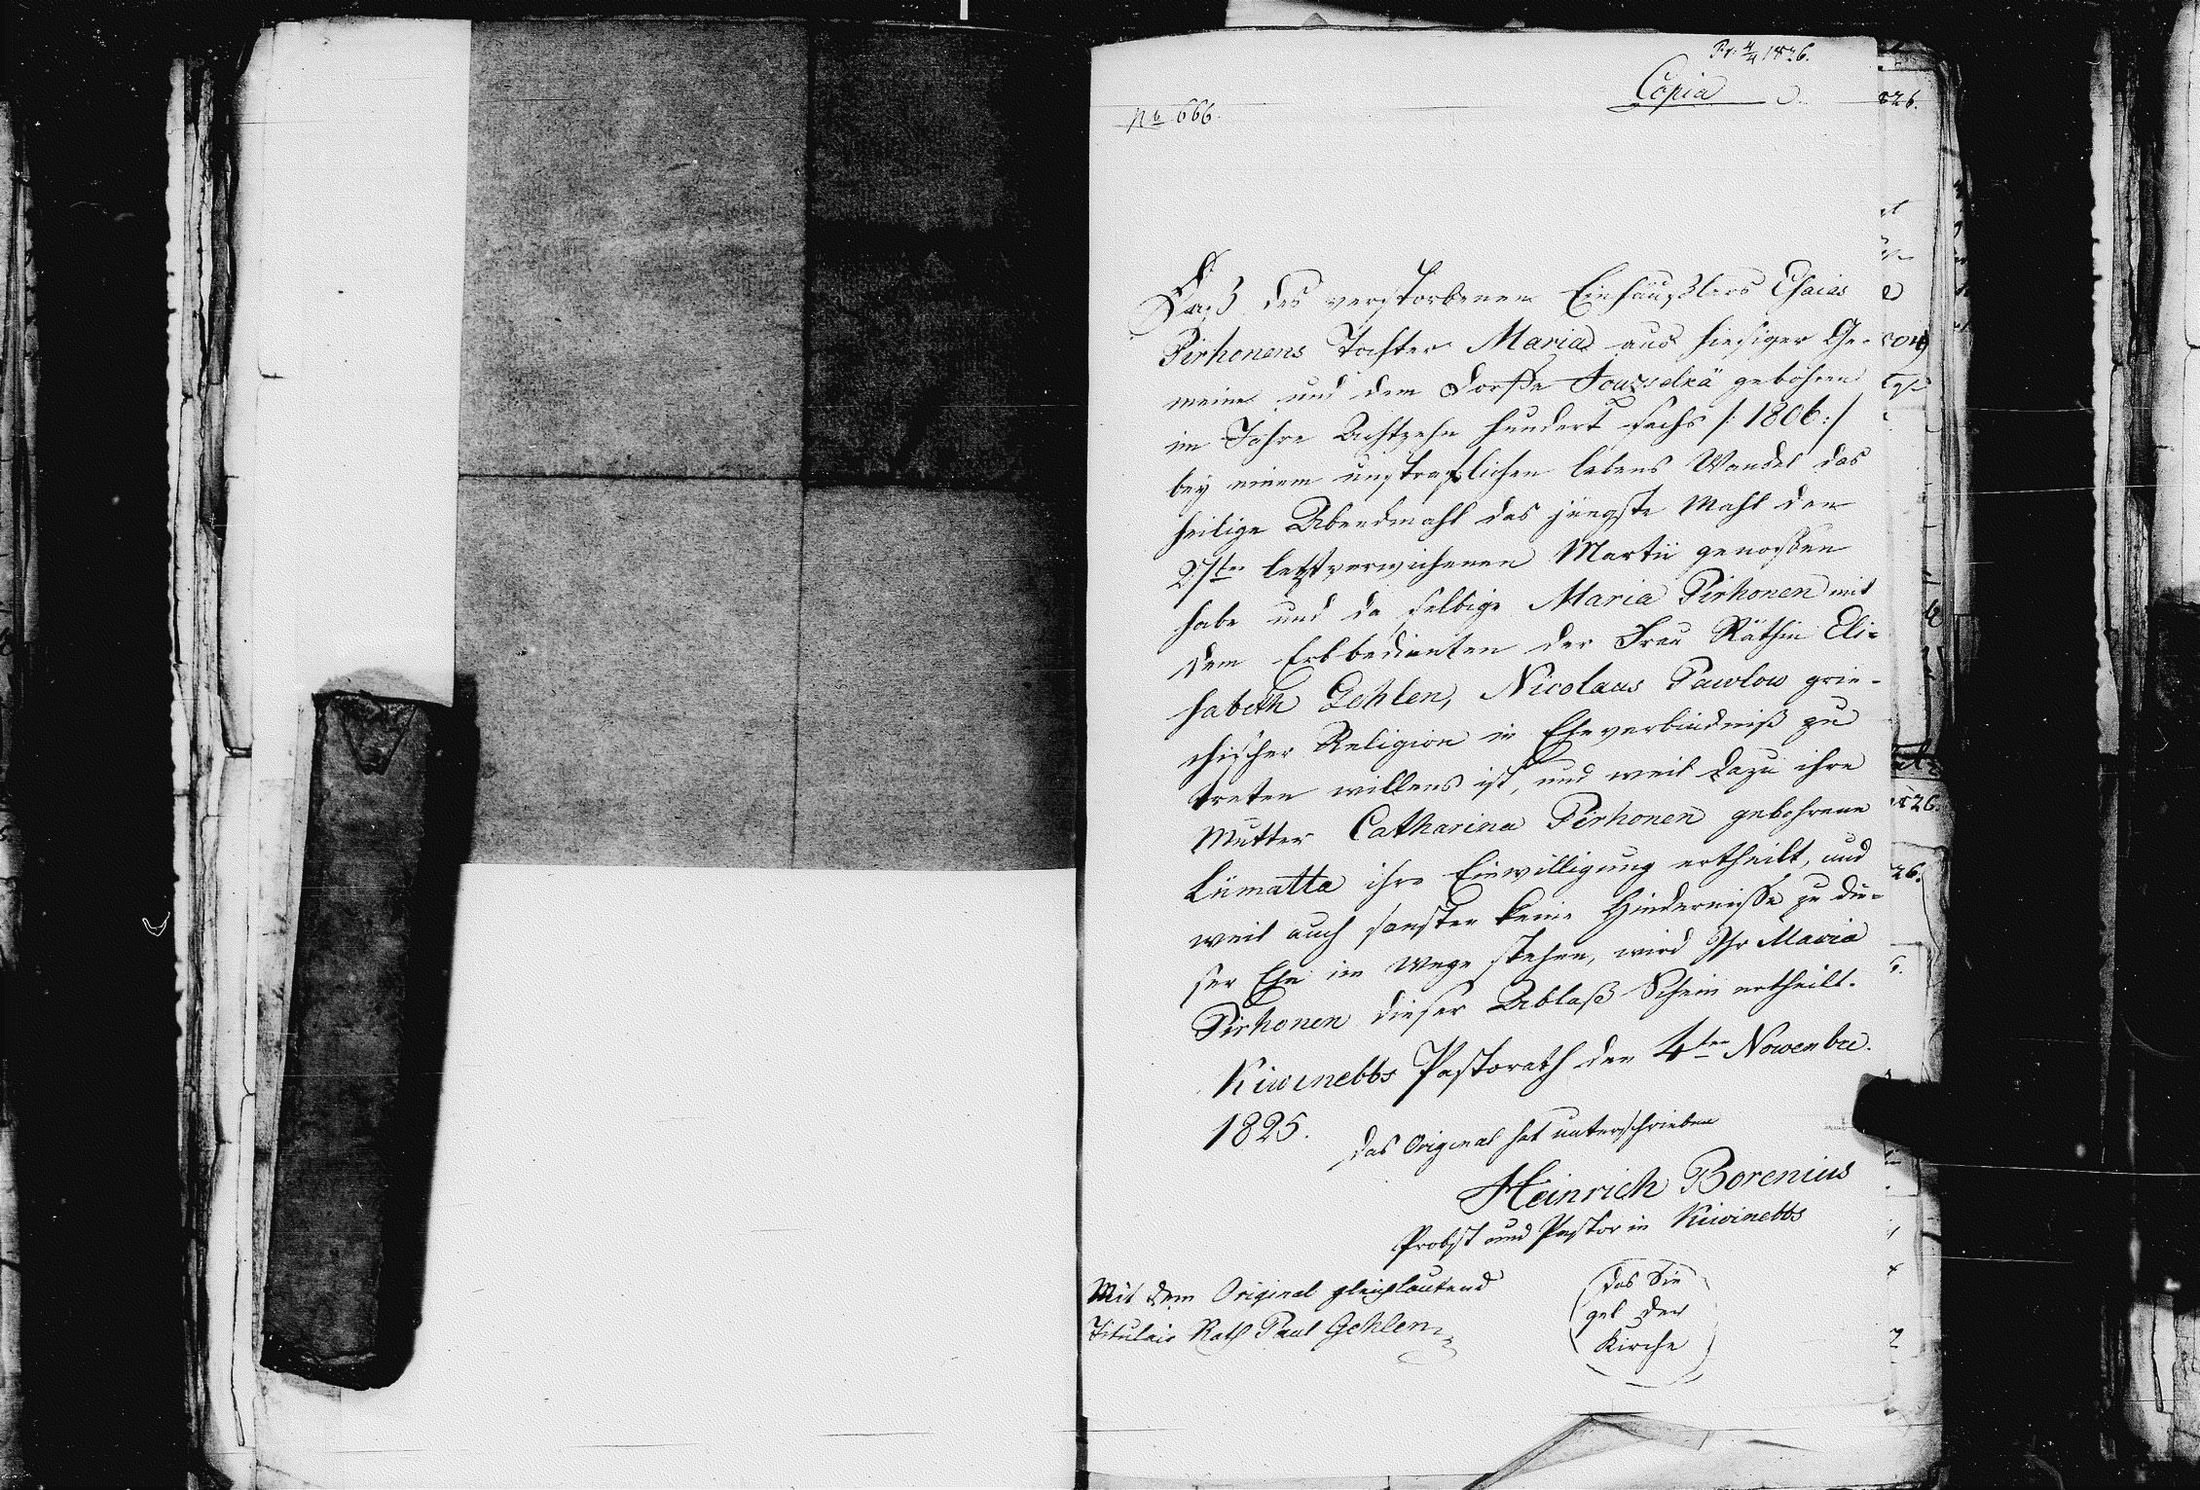 Pr. 4/4 1826.
Copia
No 666.
Daß des verstorbenen Einhäußlers Esaias
Pirhonens Tochter Maria aus hiesiger Ge-
meine und dem Dorffe gebohren
im Jahre Achtzehn hundert sechs /: 1806 :/
bey einem unsträflichen lebens Wandel das
heilige Abendmahl das jüngste Mahl den
27sten letztverwichenen Martii genossen
habe und da selbige Maria Pirhonen mit
dem Erbbedienten der Frau Räthin Eli-
sabeth Gehlen, Nicolaus Pawlow grie-
chischer Religion in Eheverbindniß zu
treten willens ist, und weil dazu ihre
Mutter Catharina Pirhonen gebohrene
Liimatta ihre Einwilligung ertheilt, und
weil auch sonsten keine Hindernisse zu die-
ser Ehe im Wege stehen, wird Ihr Maria
Pirhonen dieser Ablaß Schein ertheilt.
Kiwinebbs Pastorath den 4ten Nowenbre.
1825.
Das Original hat unterschrieben
Heinrich Borenius
Probst und Pastor in Kiwinebbs
Mit dem Original gleichlautend
Titulair Rath Paul Gehlen
(das Sie
gel der
Kirche)